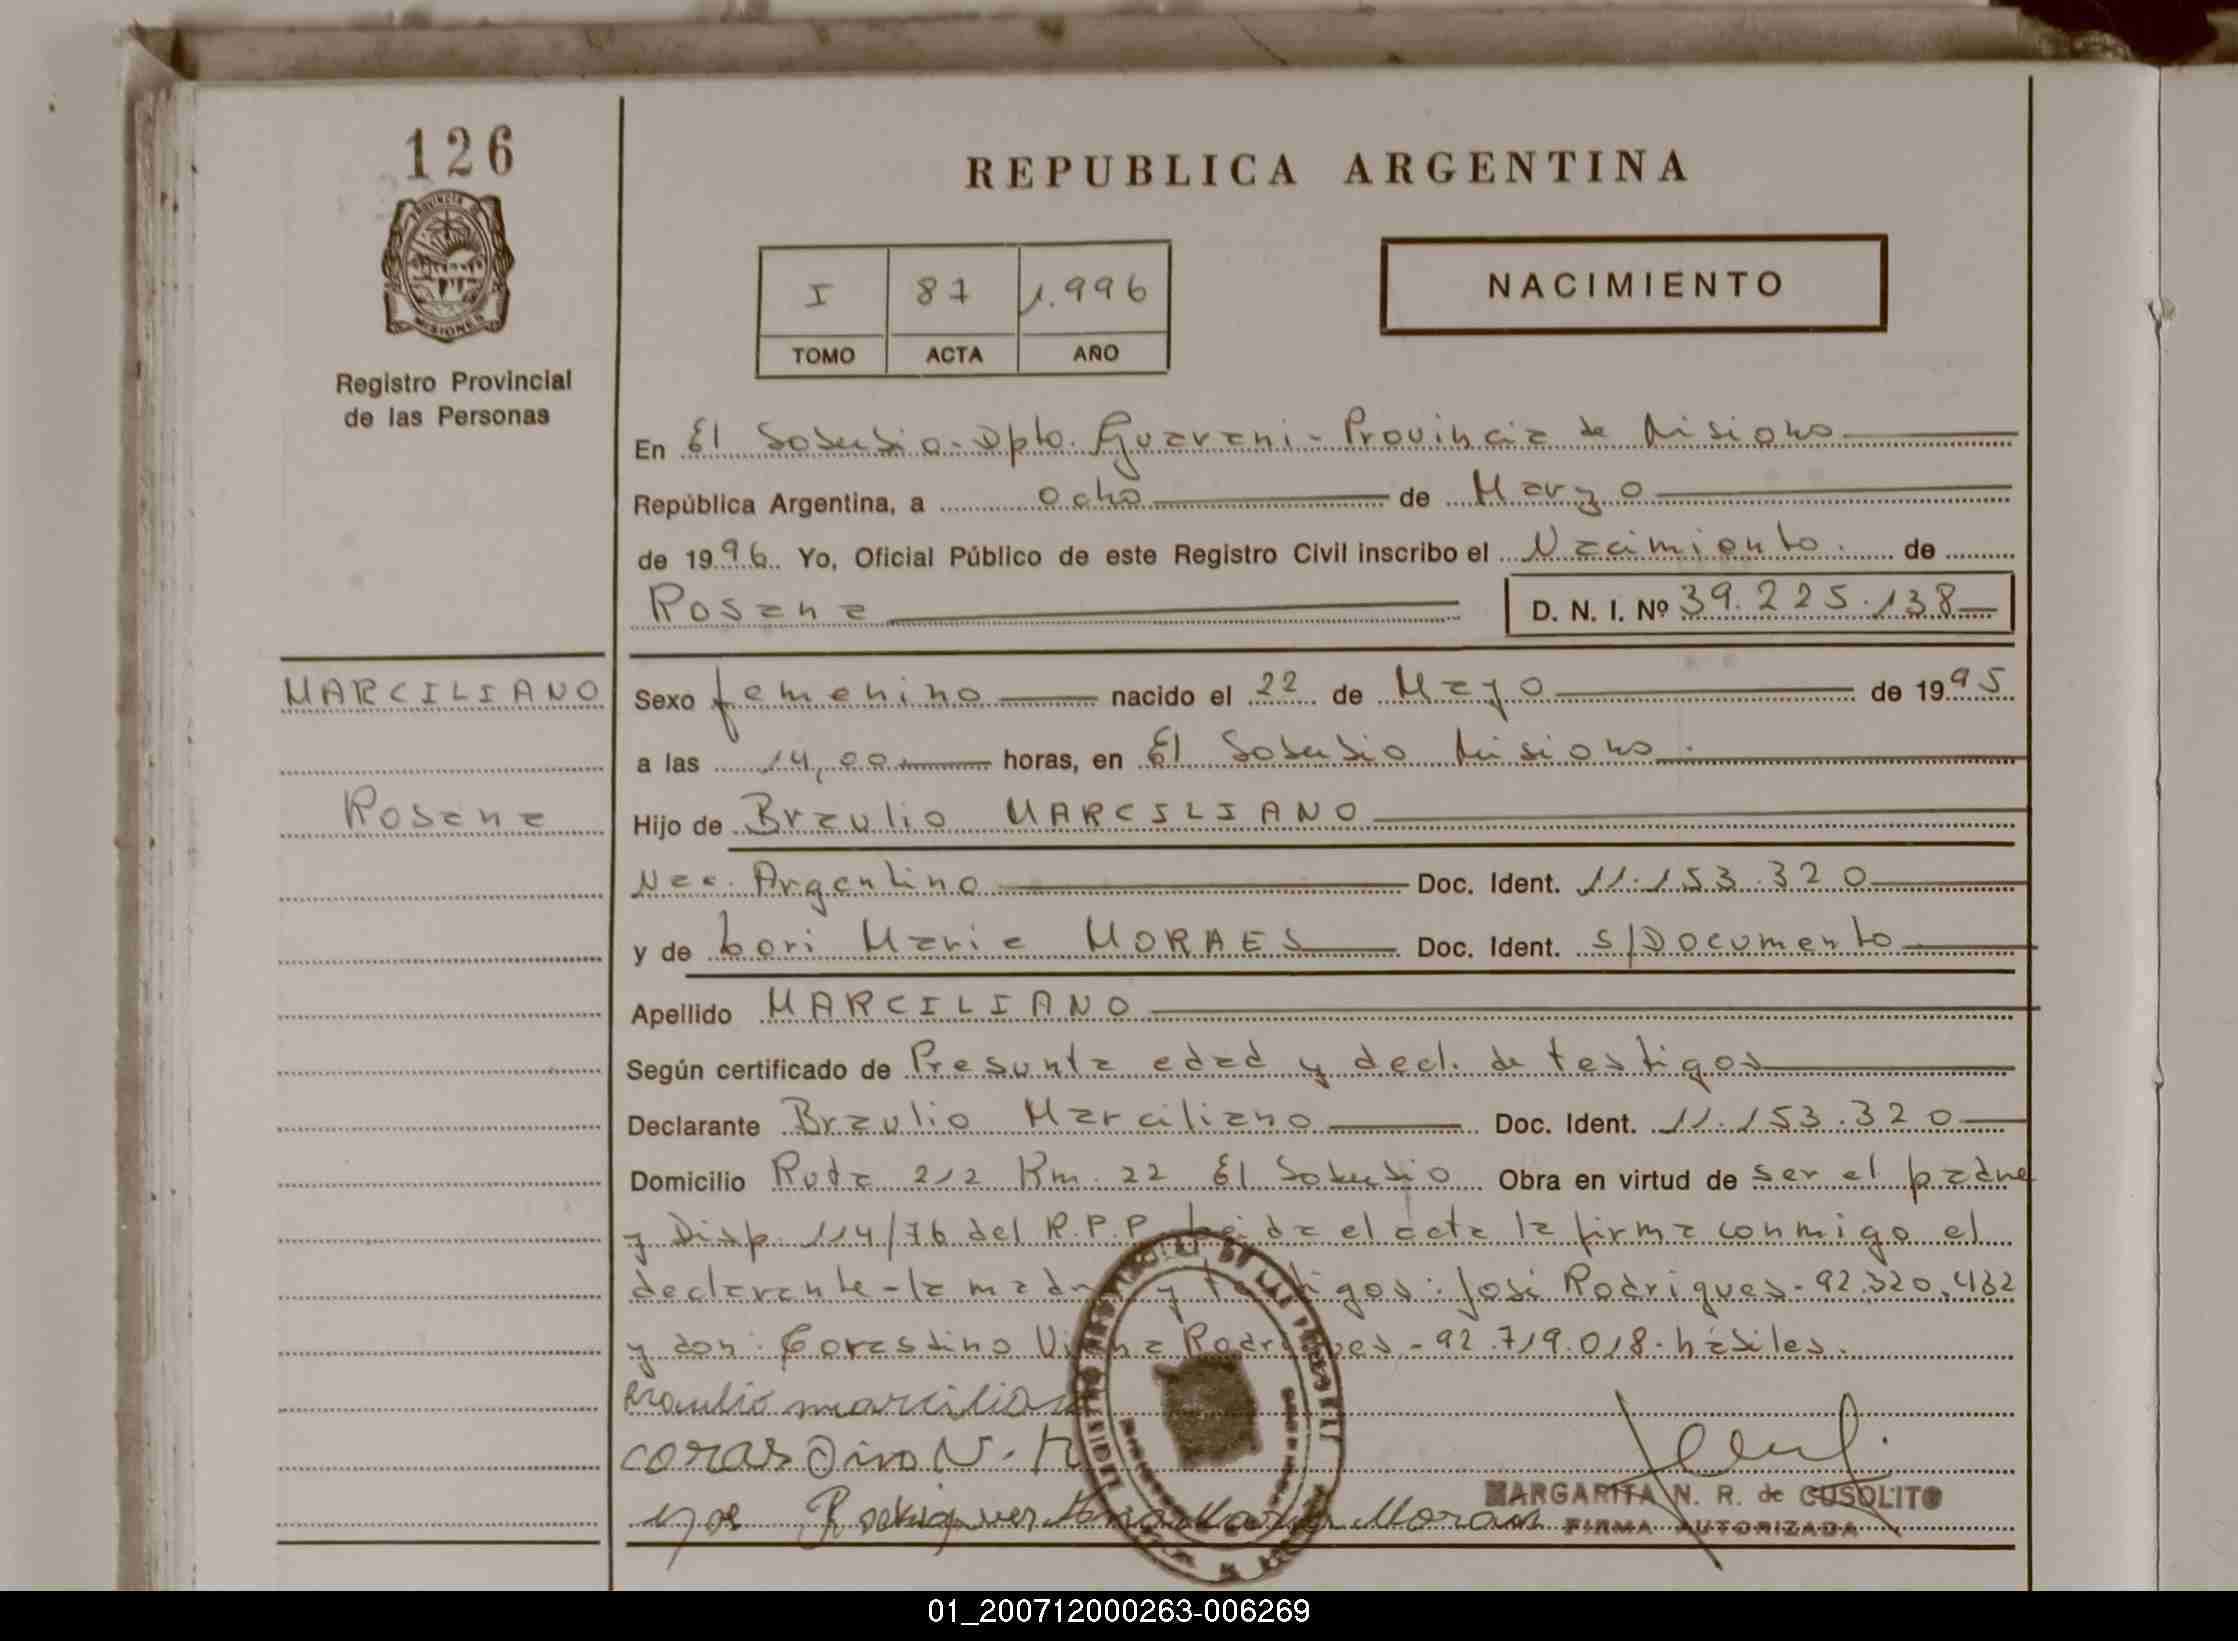 126
REPUBLICA ARGENTINA
PROVINCIA DE
MISIONES
Registro Provincial
de las Personas
I 87 1.996
TOMO ACTA AÑO
NACIMIENTO
En El Soberbio - Dpto. Guarani - Provincia de Misiones
República Argentina, a ocho de Marzo
de 1996. Yo, Oficial Público de este Registro Civil inscribo el Nacimiento de
Rosana D. N. I. Nº 39.225.138
MARCILIANO
Sexo femenino nacido el 22 de Mayo de 1995
a las 14,00 horas, en El Soberbio Misiones.
Rosana
Hijo de Braulio MARCILIANO
Nac. Argentino Doc. Ident. 11.153.320
y de Lori Maria MORAES Doc. Ident. S/Documento
Apellido MARCILIANO
Según certificado de Presunta edad y decl. de testigos
Declarante Braulio Marciliano Doc. Ident. 11.153.320
Domicilio Ruta 212 Km. 22 El Soberbio Obra en virtud de ser el padre
y Disp. 114/76 del R.P.P. Leida el acta la firma conmigo el
declarante - la madre y testigos: José Rodrigues - 92.320.432
y don: Corasdino Viana Rodrigues - 92.719.018 - hábiles.
Braulio marciliano
corasdino V. R
Rodriguez Maria Moraes
MARGARITA N. R. de CUSOLITO
FIRMA AUTORIZADA
01_200712000263-006269